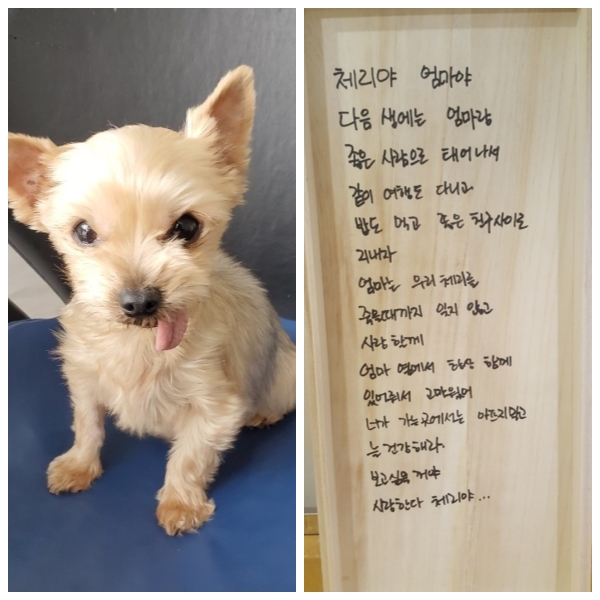 체리야 엄마야
다음 생에는 엄마랑
좋은 사람으로 태어나서
같이 여행도 다니고
밥도 먹고 좋은 친구사이로
지내자
엄마는 우리 체리를
죽을때까지 잊지 않고
사랑할께
엄마 옆에서 항상 함께
있어줘서 고마웠어
너가 가는곳에서는 아프지말고
늘 건강해라.
보고싶을거야
사랑한다 체리야...